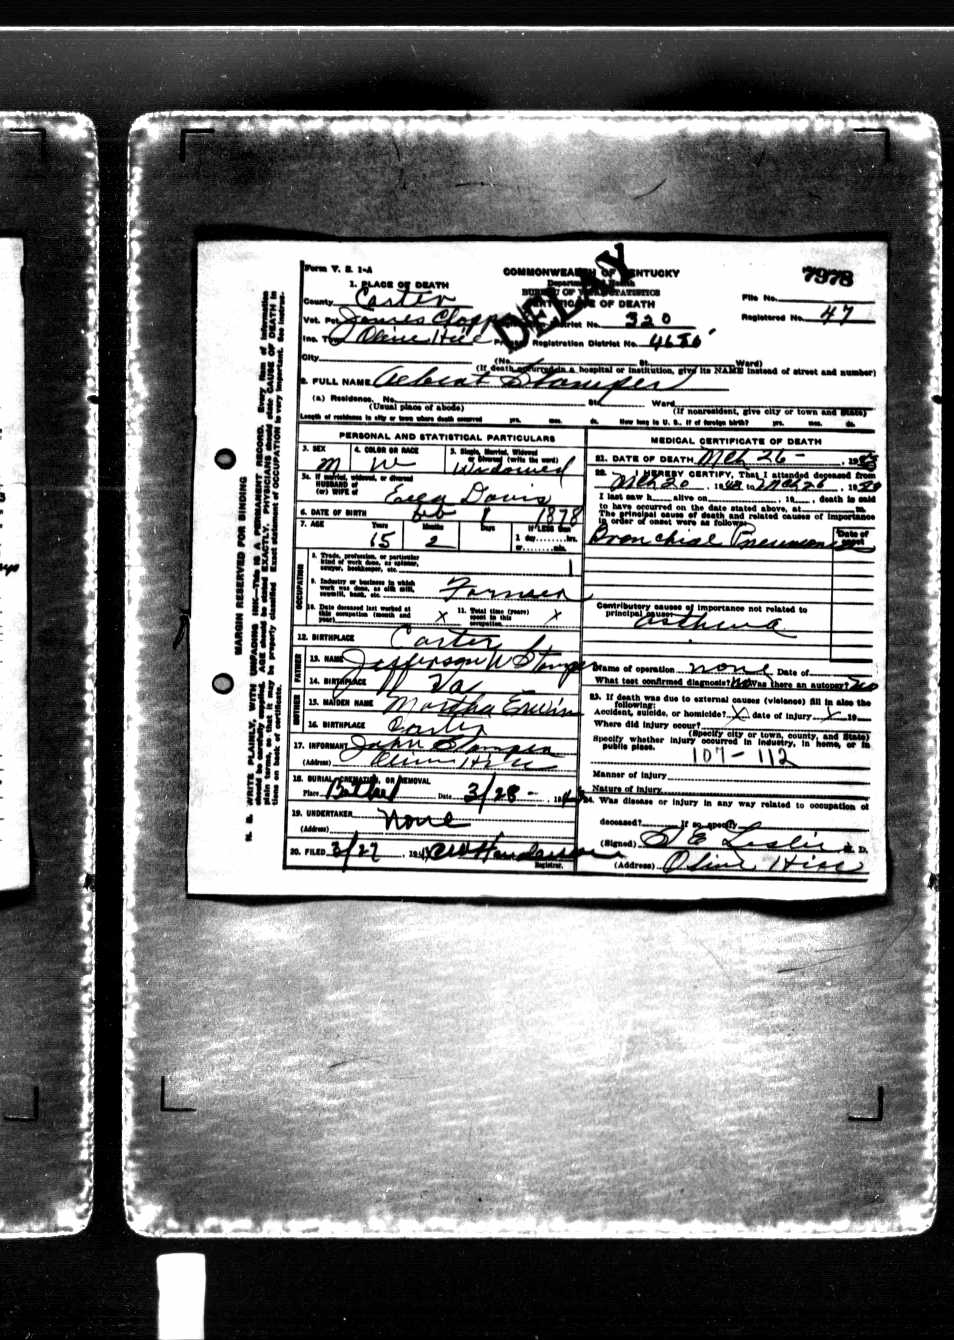 Form V. S. 1-A
COMMONWEALTH OF KENTUCKY
DELAY
7978
1. PLACE OF DEATH
Department of Health
BUREAU OF VITAL STATISTICS
CERTIFICATE OF DEATH
County Carter
File No.
Vot. Pct. James Registration District No. 320
Registered No. 47
Inc. Town Olive Hill Primary Registration District No.
City (No. St. Ward)
(If death occurred in a hospital or institution, give its NAME instead of street and number)
2. FULL NAME Albert Stamper
(a) Residence. No. St. Ward
(Usual place of abode) (If nonresident, give city or town and State)
Length of residence in city or town where death occurred yrs. mos. ds. How long in U. S., if of foreign birth? yrs. mos. ds.
PERSONAL AND STATISTICAL PARTICULARS
3. SEX 4. COLOR OR RACE 5. Single, Married, Widowed or Divorced (write the word)
M W Widowed
5a. If married, widowed, or divorced
HUSBAND of
(or) WIFE of Davis
6. DATE OF BIRTH Feb 1878
7. AGE Years Months Days If LESS than
2 1 day hrs.
or min.
OCCUPATION
8. Trade, profession, or particular
kind of work done, as spinner,
sawyer, bookkeeper, etc.
9. Industry or business in which
work was done, as silk mill,
sawmill, bank, etc. Farmer
10. Date deceased last worked at
this occupation (month and
year) X
11. Total time (years)
spent in this
occupation X
12. BIRTHPLACE Carter
FATHER
13. NAME Jefferson W Stamper
14. BIRTHPLACE Va
MOTHER
15. MAIDEN NAME Martha Erwin
16. BIRTHPLACE Carter
17. INFORMANT John Stamper
(Address) Olive Hill
18. BURIAL, CREMATION, OR REMOVAL
Place Bethel Date 3/28
19. UNDERTAKER None
(Address)
20. FILED 3/27 Henderson
Registrar.
MEDICAL CERTIFICATE OF DEATH
21. DATE OF DEATH Mch 26
22. I HEREBY CERTIFY, That I attended deceased from
Mch 20 to Mch 26
I last saw h alive on , 19 , death is said
to have occurred on the date stated above, at m.
The principal cause of death and related causes of importance
in order of onset were as follows: Date of onset
Bronchial Pneumonia
Contributory causes of importance not related to
principal cause:
asthma
Name of operation none Date of
What test confirmed diagnosis? no Was there an autopsy? no
23. If death was due to external causes (violence) fill in also the
following:
Accident, suicide, or homicide? X date of injury X 19
Where did injury occur?
(Specify city or town, county, and State)
Specify whether injury occurred in industry, in home, or in
public place.
107-112
Manner of injury
Nature of injury
24. Was disease or injury in any way related to occupation of
deceased? If so, specify
(Signed) Leslie M. D.
(Address) Olive Hill
MARGIN RESERVED FOR BINDING
N. B. WRITE PLAINLY, WITH UNFADING INK—This is A PERMANENT RECORD. Every item of information
should be carefully supplied. AGE should be stated EXACTLY. PHYSICIANS should state CAUSE OF DEATH in
plain terms, so that it may be properly classified. Exact statement of OCCUPATION is very important. See instructions on back of certificate.